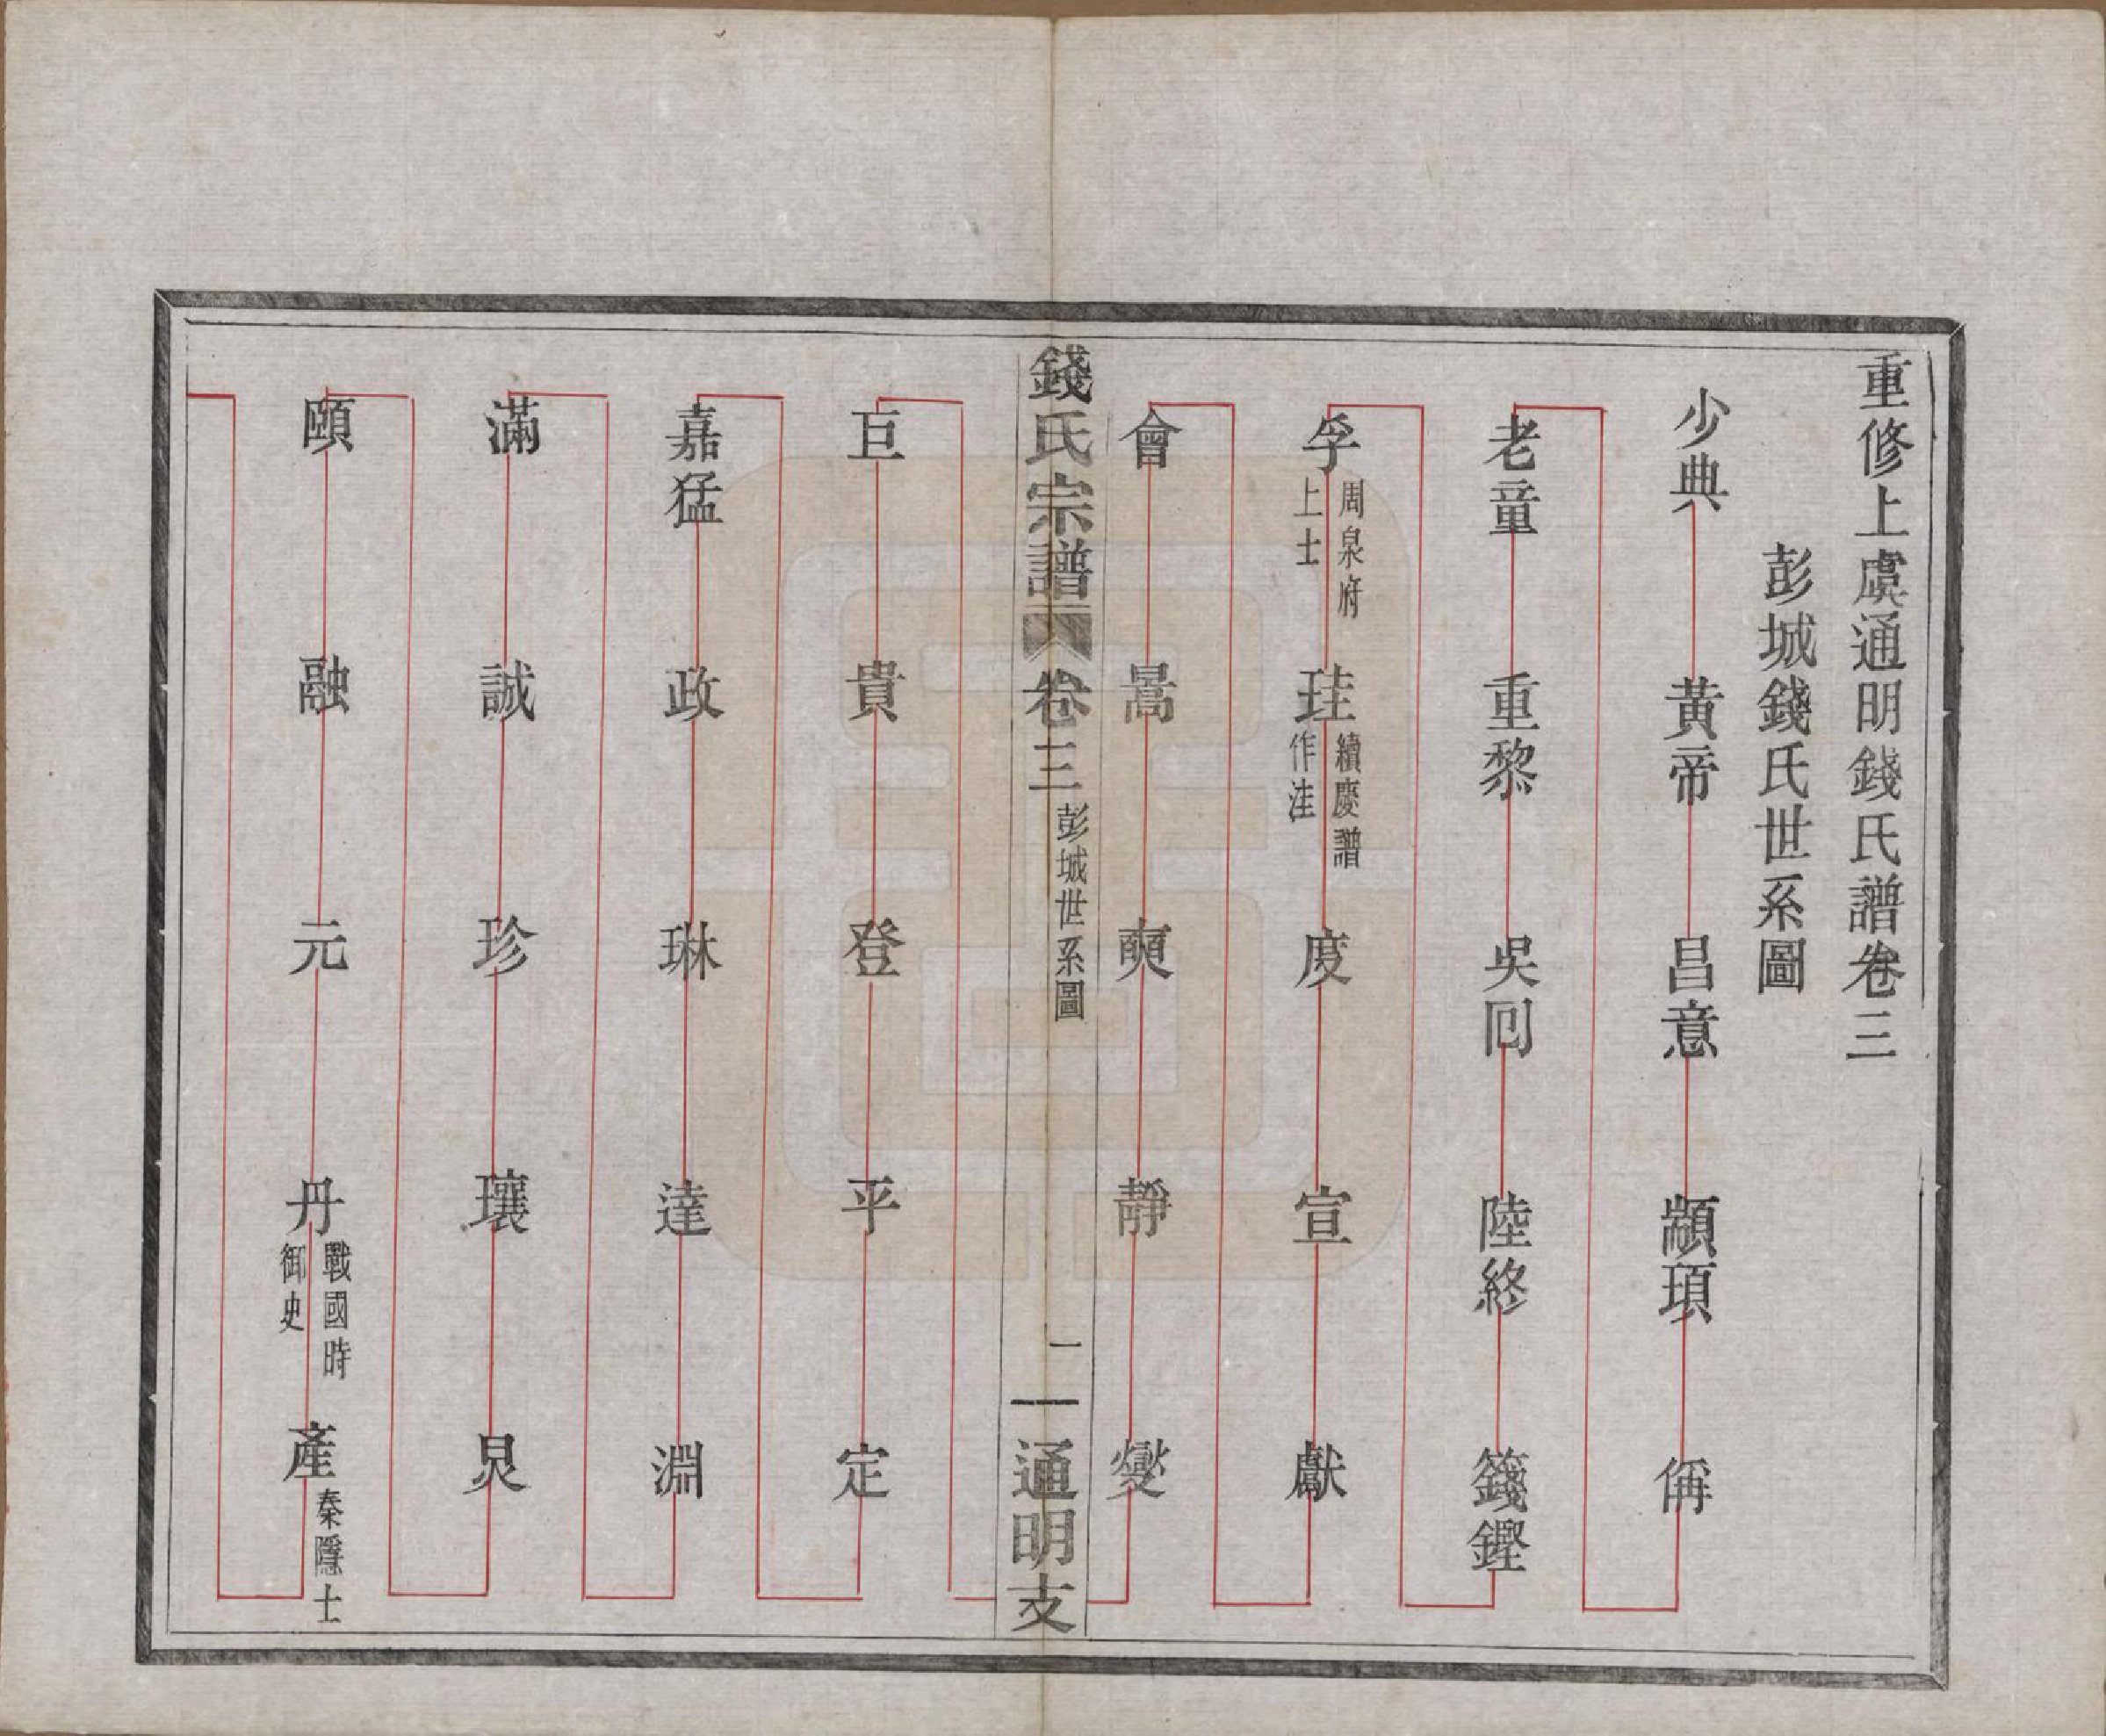 重修上虞通明錢氏譜卷三
彭城錢氏世系圖
少典 黃帝 昌意 顓頊 偁
老童 重黎 吳囘 陸終 籛鏗
孚 周泉府上士 珪 續慶譜作洼 度 宣 獻
會 暠 奭 靜 燮
錢氏宗譜 卷三 彭城世系圖 一 通明支
巨 貴 登 平 定
嘉猛 政 琳 達 淵
滿 誠 珍 瓌 炅
頤 融 元 丹 戰國時御史 產 秦隱士